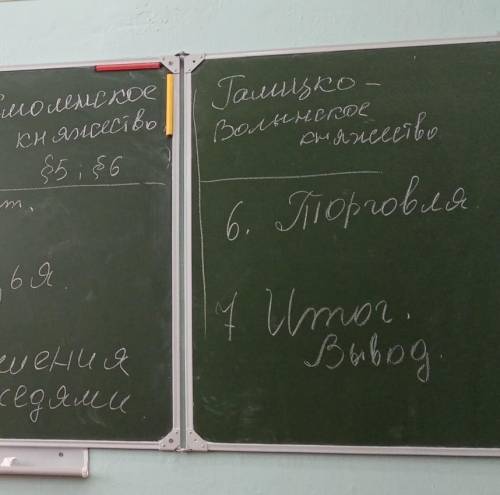 моленское
княжество
§5; §6
т.
ья.
ения
седями
Галицко-
Волынское
княжество
6. Торговля
7 Итог.
Вывод.